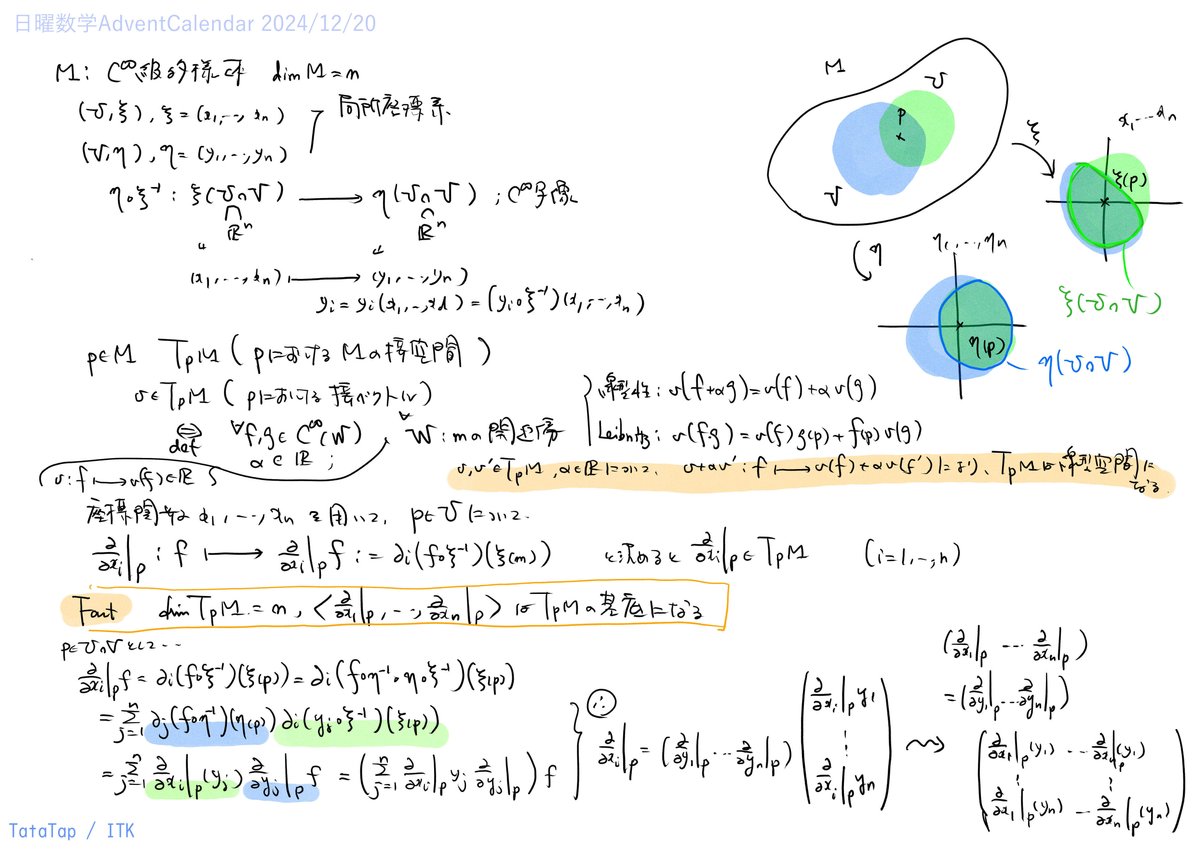 日曜数学AdventCalendar 2024/12/20
M: C^∞級多様体 dim M = n
(U, ξ), ξ = (x_1, …, x_n)
(V, η), η = (y_1, …, y_n)
局所座標系
η∘ξ^{-1} : ξ(U∩V) ⟶ η(U∩V) ; C^∞写像
∩ ∩
ℝ^n ℝ^n
(x_1, …, x_n) ⟼ (y_1, …, y_n)
y_i = y_i(x_1, …, x_d) = (y_i∘ξ^{-1})(x_1, …, x_n)
p∈M T_pM (pにおけるMの接空間)
v∈T_pM (pにおける接ベクトル)
⇔def ∀f,g∈C^∞(W) ∀W: mの開近傍
α∈ℝ ;
v: f ⟼ v(f)∈ℝ
線型性: v(f+αg) = v(f) + αv(g)
Leibniz: v(fg) = v(f)g(p) + f(p)v(g)
v, v'∈T_pM, α∈ℝについて、 v+αv' : f ⟼ v(f)+αv(f')により、T_pMは線型空間になる
座標関数 x_1, …, x_n を用いて、 p∈Uについて
∂/∂x_i|_p : f ⟼ ∂/∂x_i|_p f := ∂_i(f∘ξ^{-1})(ξ(m)) と決めると ∂/∂x_i|_p ∈ T_pM (i=1, …, n)
Fact dim T_pM = n, <∂/∂x_1|_p, …, ∂/∂x_n|_p> は T_pMの基底になる
p∈U∩Vとして…
∂/∂x_i|_p f = ∂_i(f∘ξ^{-1})(ξ(p)) = ∂_i(f∘η^{-1}∘η∘ξ^{-1})(ξ(p))
= Σ_{j=1}^n ∂_j(f∘η^{-1})(η(p)) ∂_i(y_j∘ξ^{-1})(ξ(p))
= Σ_{j=1}^n ∂/∂x_i|_p(y_j) ∂/∂y_j|_p f = (Σ_{j=1}^n ∂/∂x_i|_p y_j ∂/∂y_j|_p) f
∴
∂/∂x_i|_p = (∂/∂y_1|_p … ∂/∂y_n|_p) (∂/∂x_i|_p y_1 ⋮ ∂/∂x_i|_p y_n)
(∂/∂x_1|_p … ∂/∂x_n|_p)
= (∂/∂y_1|_p … ∂/∂y_n|_p)
(∂/∂x_1|_p(y_1) … ∂/∂x_n|_p(y_1)
⋮ ⋮
∂/∂x_1|_p(y_n) … ∂/∂x_n|_p(y_n))
M
U
p
V
ξ
x_1 … x_n
ξ(p)
ξ(U∩V)
η
η_1, …, η_n
η(p)
η(U∩V)
TataTap / ITK